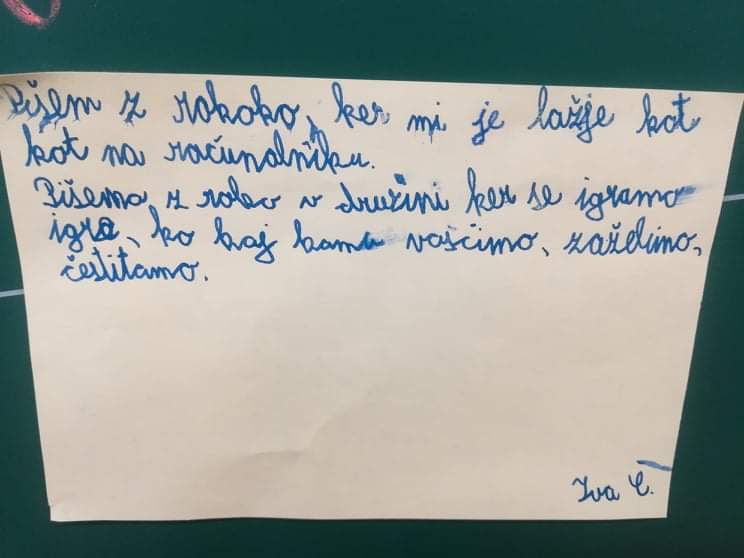 Pišem z rokoko, ker mi je lažje kot
kot na računalniku.
Pišemo z roko v družini ker se igramo
igre, ko kaj kamu voščimo, zaželimo,
čestitamo.
Iva C.